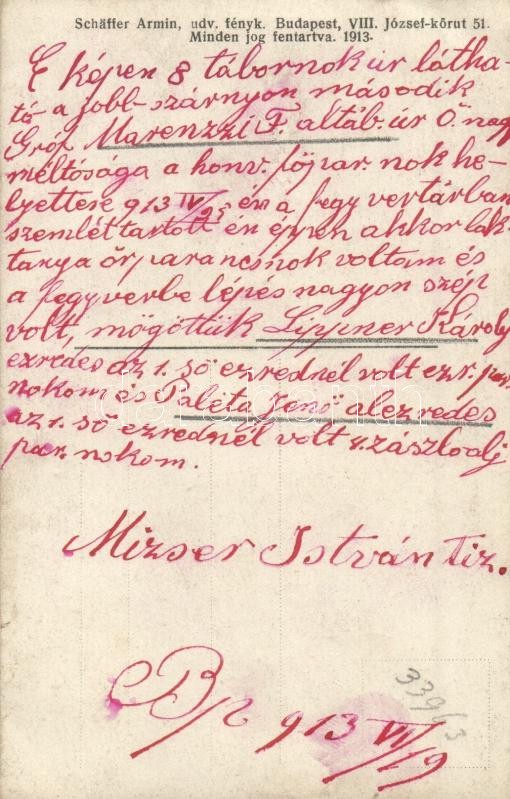 Schäffer Armin, udv. fényk. Budapest, VIII. József-kőrut 51.
Minden jog fentartva. 1913.
E képen 8 tábornok úr látha-
tó a jobb szárnyon második
Gróf Marenzzi F. altáb. úr Ő. nagy
méltósága a honv. főpar. nok he-
lyettese 913 IV/25 én a fegyvertárban
szemlét tartott én éppen akkor lak-
tanya őrparancsnok voltam és
a fegyverbe lépés nagyon szép
volt, mögöttük Lippner Károly
ezredes az 1. ső ezrednél volt ezr. par.
nokom és Paléta Jenő alezredes
az 1. ső ezrednél volt 4. zászlóalj
par. nokom.
Mizser István Tiz.
Bp 913 VI/19